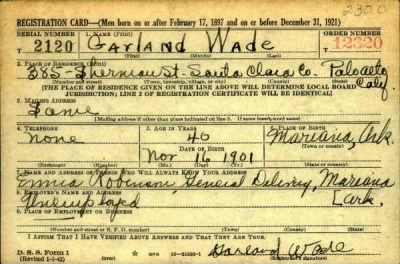 2320
REGISTRATION CARD—(Men born on or after February 17, 1897 and on or before December 31, 1921)
SERIAL NUMBER 1. NAME (Print) ORDER NUMBER
T 2120 Garland Wade 12320
(First) (Middle) (Last)
2. PLACE OF RESIDENCE (Print)
385 - Sherman St. Santa Clara Co. Palo Alto
Calif
(Number and street) (Town, township, village, or city) (County) (State)
[THE PLACE OF RESIDENCE GIVEN ON THE LINE ABOVE WILL DETERMINE LOCAL BOARD
JURISDICTION; LINE 2 OF REGISTRATION CERTIFICATE WILL BE IDENTICAL]
3. MAILING ADDRESS
Same
[Mailing address if other than place indicated on line 2. If same insert word same]
4. TELEPHONE 5. AGE IN YEARS 6. PLACE OF BIRTH
none 40 Mariana, Ark.
DATE OF BIRTH (Town or county)
Nov 16 1901
(Exchange) (Number) (Mo.) (Day) (Yr.) (State or country)
7. NAME AND ADDRESS OF PERSON WHO WILL ALWAYS KNOW YOUR ADDRESS
Robinson, General Delivery, Mariana
8. EMPLOYER'S NAME AND ADDRESS
Unemployed Ark.
9. PLACE OF EMPLOYMENT OR BUSINESS
(Number and street or R. F. D. number) (Town) (County) (State)
I AFFIRM THAT I HAVE VERIFIED ABOVE ANSWERS AND THAT THEY ARE TRUE.
D. S. S. Form 1
(Revised 1-1-42) (over)
Garland Wade